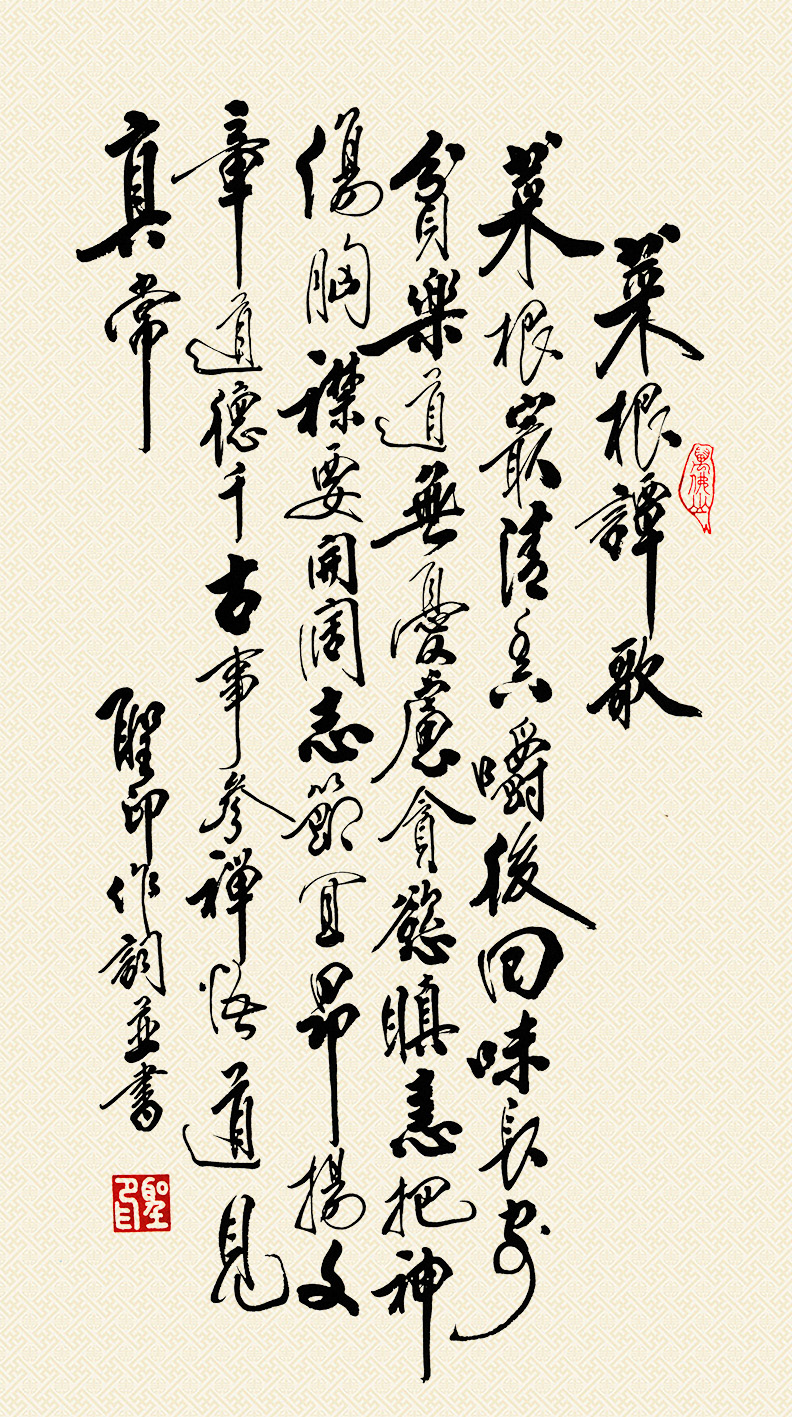 菜根譚歌
萬佛
菜根最清香嚼後回味長安
貧樂道無憂慮貪慾瞋恚把神
傷胸襟要開闊志節宜昂揚文
章道德千古事參禪悟道見
真常
聖印作詞並書
聖印